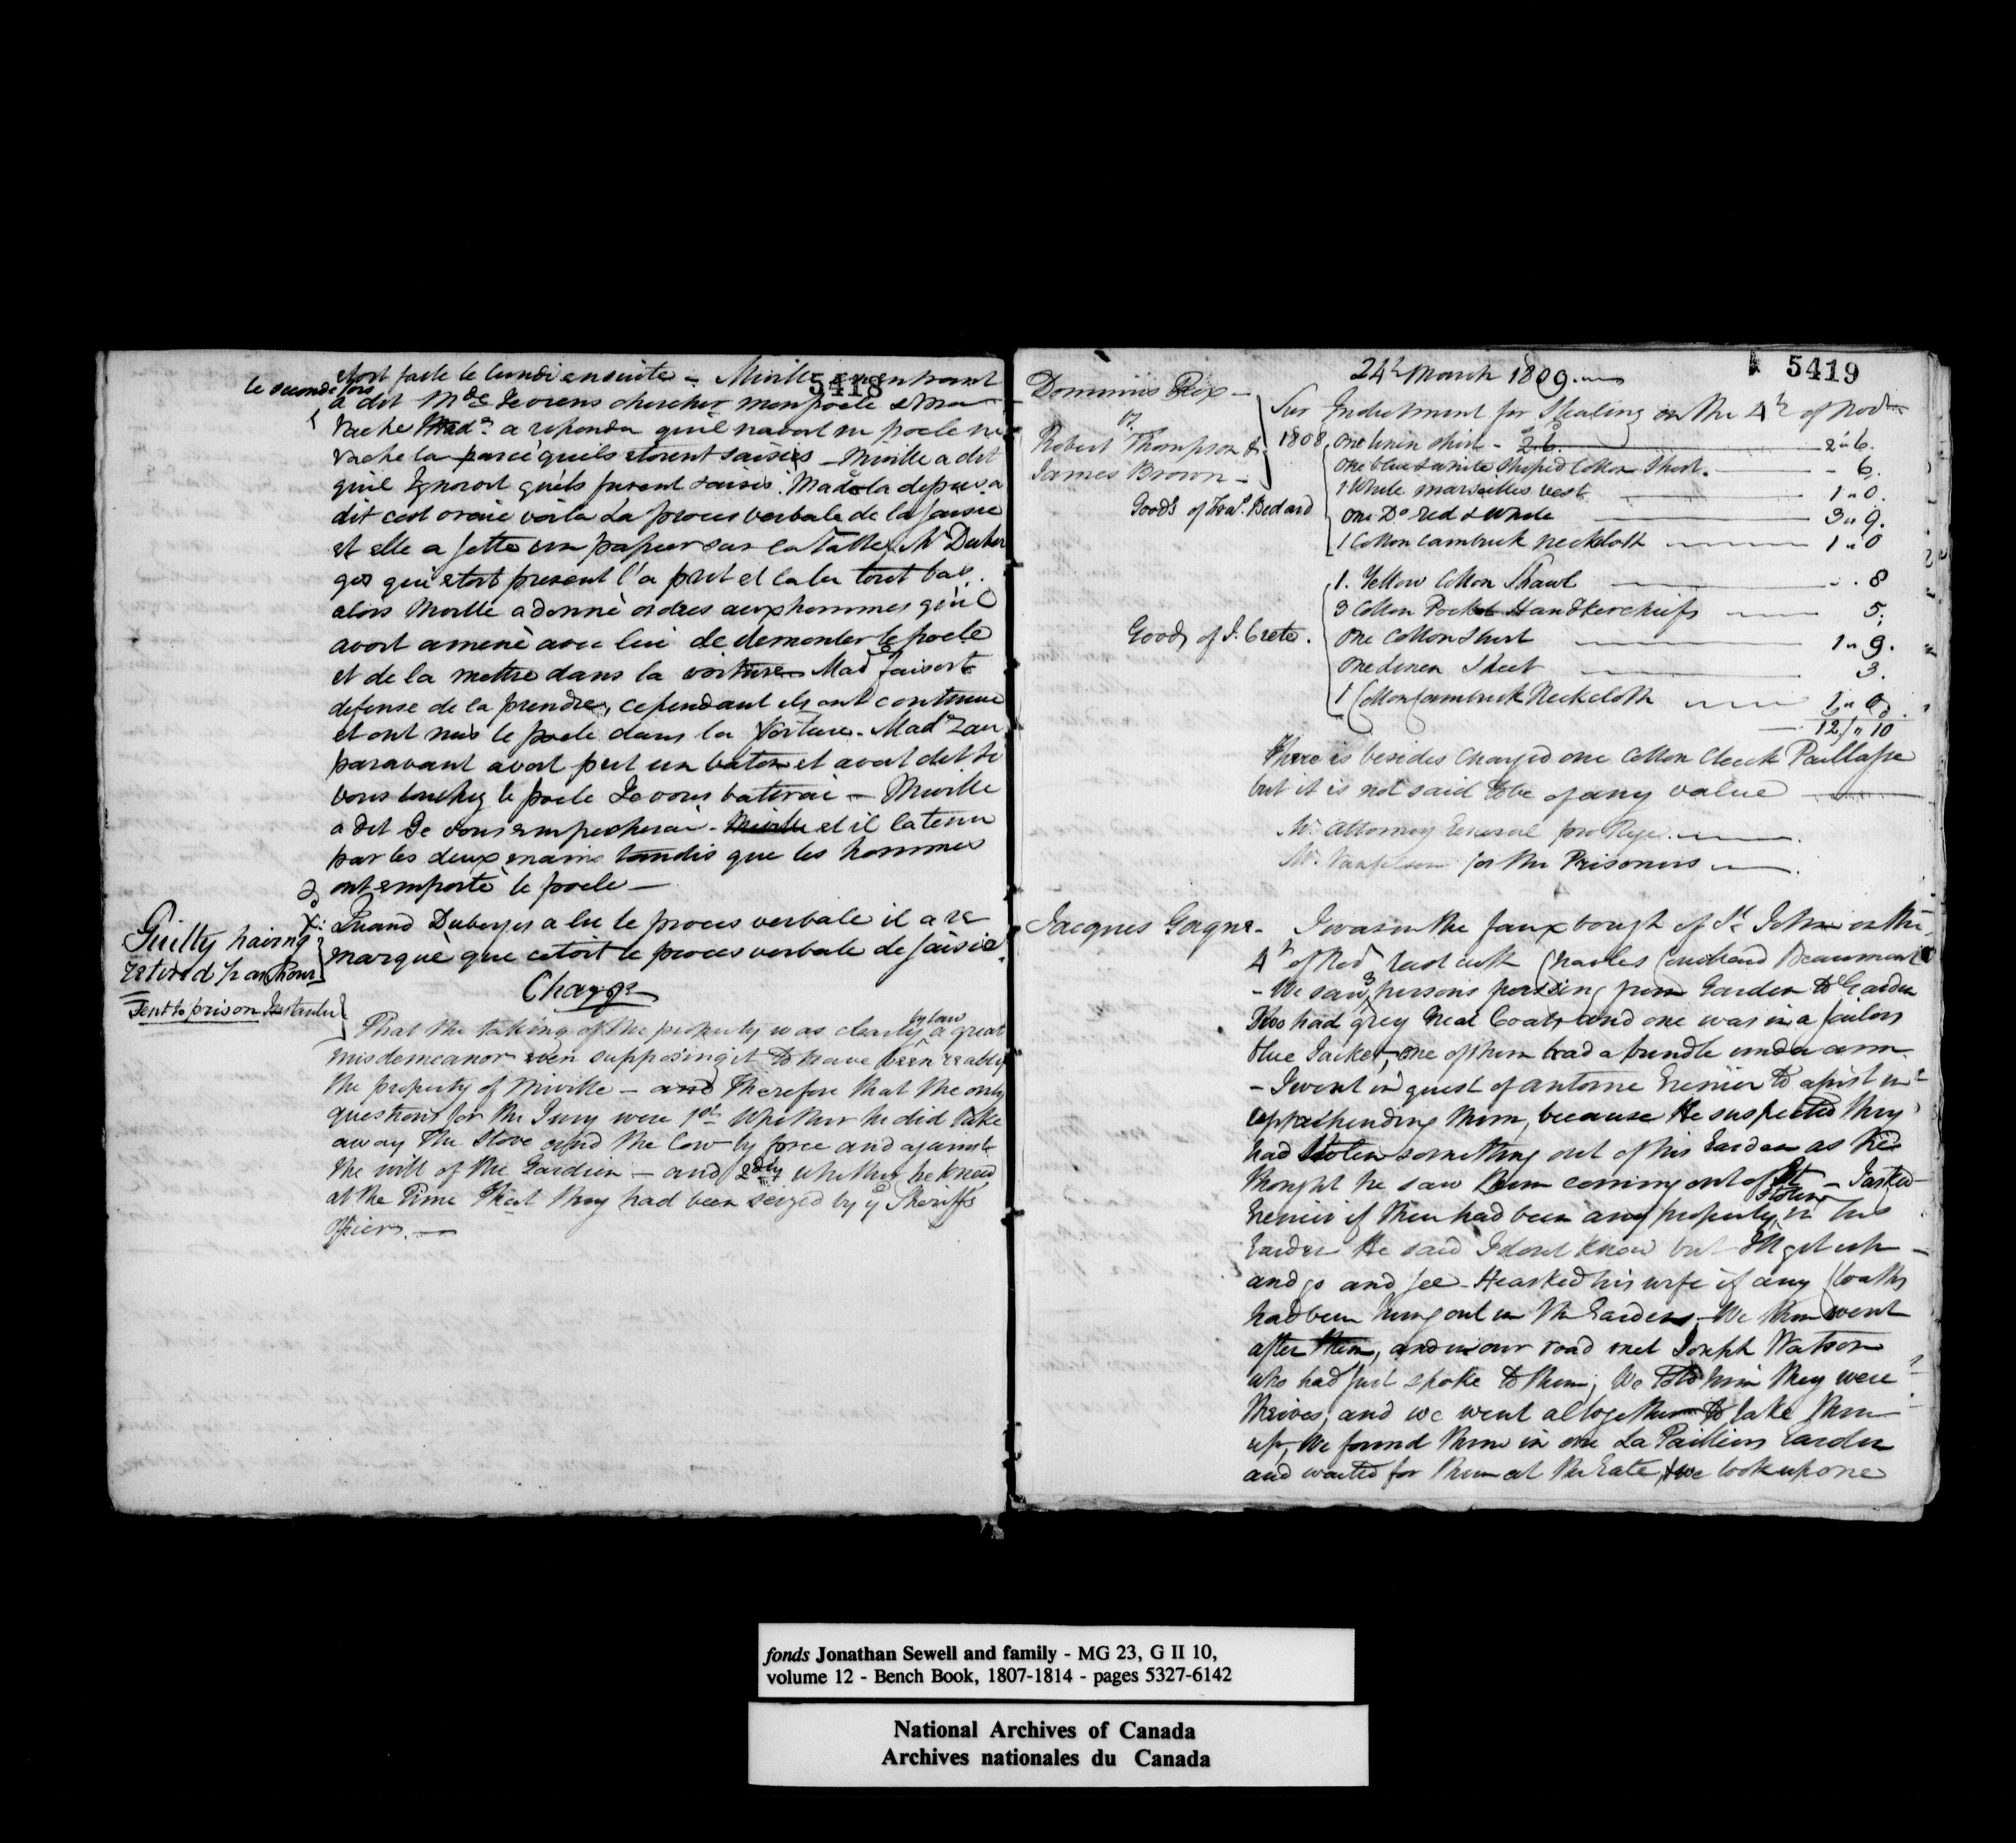 5418
etoit faite le lundi ensuite - Miville en entrant
le seconde fois
a dit Mde Je viens chercher mon poele & ma
vache Made a repondu qu'il n'avoit ni poele ni
vache la parcequ'ils etoient saisies - Miville a dit
qu'il Ignoroit qu'ils furent saisis. Made la
dit cest vraie voila La proces verbale de la saisie
et elle a jetté un papier sur la Table, Mr Duber
ges qui etoit present l'a prit et la lu tout bas.
alors Miville a donné ordres aux hommes qu'il
avoit amené avec lui de demonter le poele
et de la mettre dans la voiture Made faisoit
defense de la prendre, cependant ils ont continué
et ont mis le poele dans la Voiture. Made au
paravant avoit prit un baton et avoit dit si
vous touchez le poele Je vous batterai - Miville
a dit Je vous empecherai - Miville et il la tenu
par les deux mains tandis que les hommes
ont emporté le poele -
X: Quand Duberges a lu le proces verbale il a re
marqué que cetoit le proces verbale de saisie.
Guilty having
retired ½ an hour
Sent to prison Instanter
Charge
That the taking of the property was clearly by law a great
misdemeanor even supposing it to have been really
the property of Miville - and Therefore that the only
questions for the Jury were 1st Whether he did take
away The Stove and the Cow by force and against
the will of the Gardien - and 2dly whether he knew
at the Time That they had been seized by ye Sheriffs
Officers. -
5419
24th March 1809.
Dominus Rex -
vs
Robert Thompson &
James Brown -
Sur Indictment for Stealing on the 4th of Novr
1808, One linen shirt - 2.6. 2"6.
One blue & white striped Cotton Shirt. - 6.
1 White marseilles vest 1"0.
One Do red & white 3"9.
1 Cotton Cambrick neckloth 1"0
Goods of Fras. Bedard
1. Yellow Cotton Shawl .8
3 Cotton Pocket Handkerchiefs 5.
One Cotton Shirt 1"9.
One Linen Sheet 3.
1 Cotton Cambrick Neckcloth 1"0.
Goods of J. Crete.
12/"10
There is besides charged one Cotton Check Paillasse
but it is not said to be of any value
Mr. Attorney General pro Rege.
Mr. Vanfelson for the Prisoners
Jacques Gagne - I was in the fauxbourgh of St John on the
4th of Novr last with Charles Beaumont
- We saw 3 persons passing from Garden to Garden
Two had grey Great Coats and one was in a sailors
blue Jacket, One of them had a bundle under arm.
- I went in quest of Antoine Grenier to assist in
apprehending them, because He suspected they
had stolen something out of his Garden as he
thought he saw them coming out of it - I asked
Grenier if there had been any property stolen in his
Garden He said I dont know but I'll get up -
and go and see - He asked his wife if any Cloaths
had been hung out in the Garden - We then went
after them, and in our road met Joseph Watson
who had just spoke to them; We told him they were
thieves, and we went altogether to take them
up, We found them in one La Paillieurs Garden
and waited for them at the Gate, & we took up one
fonds Jonathan Sewell and family - MG 23, G II 10,
volume 12 - Bench Book, 1807-1814 - pages 5327-6142
National Archives of Canada
Archives nationales du Canada